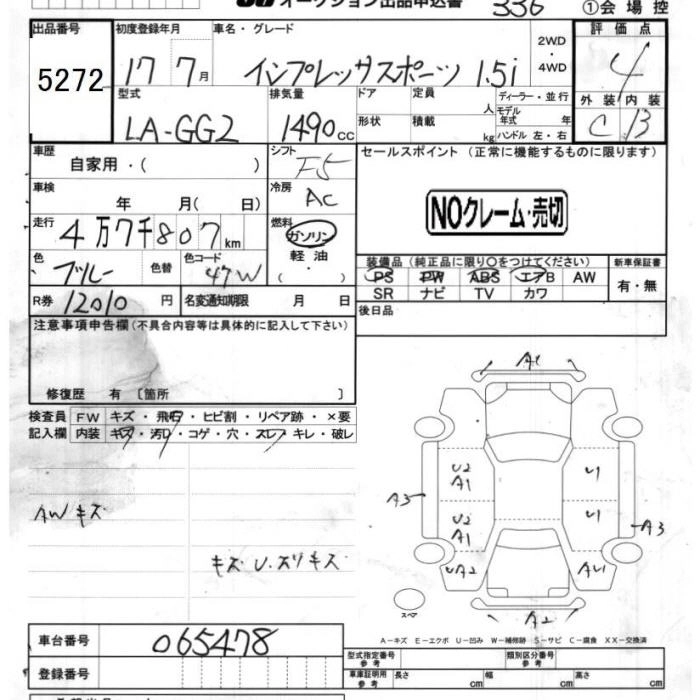 オークション出品申込書 336 ①会場控
出品番号 初度登録年月 車名・グレード 評価点
5272 17 7月 インプレッサスポーツ 1.5i 2WD・4WD 4
型式 排気量 ドア 定員 人 ディーラー・並行 外装 内装
LA-GG2 1490cc 形状 積載 kg モデル年式 年 ハンドル 左・右 C B
車歴 シフト セールスポイント (正常に機能するものに限ります)
自家用・( ) F5
車検 年 月( 日) 冷房 AC
NOクレーム・売切
走行 4万7千807km 燃料 ガソリン
軽油
・( )
色 ブルー 色替 色コード 47W
装備品 (純正品に限り○をつけてください) 新車保証書
PS PW ABS エアB AW 有・無
SR ナビ TV カワ
R券 12010円 名変通知期限 月 日
後日品
注意事項申告欄(不具合内容等は具体的に記入して下さい)
修復歴 有 〔箇所 〕
検査員 FW キズ・飛石・ヒビ割・リペア跡・×要
記入欄 内装 キズ・汚レ・コゲ・穴・スレ・キレ・破レ
A1
U2 A1 U1
AWキズ A3 U2 A1 U1 A3
キズ U.スリキズ
UA2 AU1
スペア A2
A-キズ E-エクボ U-凹み W-補修跡 S-サビ C-腐食 XX-交換済
車台番号 065478
型式指定番号 参考 類別区分番号 参考
登録番号 車庫証明用 参考 長さ cm 幅 cm 高さ cm